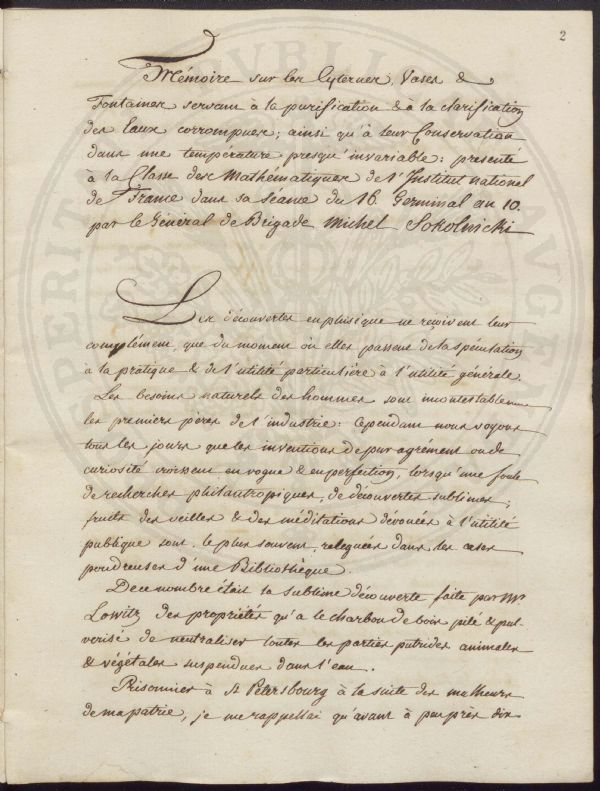 2
Mémoire sur les Cyternes, Vases &
Fontaines servant à la purification & à la clarification
des Eaux corrompues; ainsi qu'à leur Conservation
dans une température presqu'invariable: presenté
à la Classe des Mathématiques de l'Institut national
de France dans sa séance du 16. Germinal an 10.
par le Général de Brigade Michel Sokolnicki
Les découvertes en phisique ne reçoivent leur
complément, que du moment où elles passent de la spéculation
à la pratique & de l'utilité particulière à l'utilité générale.
Les besoins naturels des hommes sont incontestablement
les premiers pères de l'industrie: Cependant nous voyons
tous les jours que les inventions de pur agrément ou de
curiosité croissent en vogue & en perfection, lorsqu'une foule
de recherches philantropiques, de découvertes sublimes;
fruits des veilles & des méditations dévouées à l'utilité
publique sont, le plus souvent, releguées dans les cases
poudreuses d'une Bibliothèque.
De ce nombre était la sublime découverte faite par Mr.
Lowitz des propriétés qu'a le charbon de bois pilé & pul-
verisé de neutraliser toutes les parties putrides animales
& végétales suspendues dans l'eau.
Prisonnier à St Pétersbourg à la suite des malheurs
de ma patrie, je me rappellai qu'avant à peu près dix